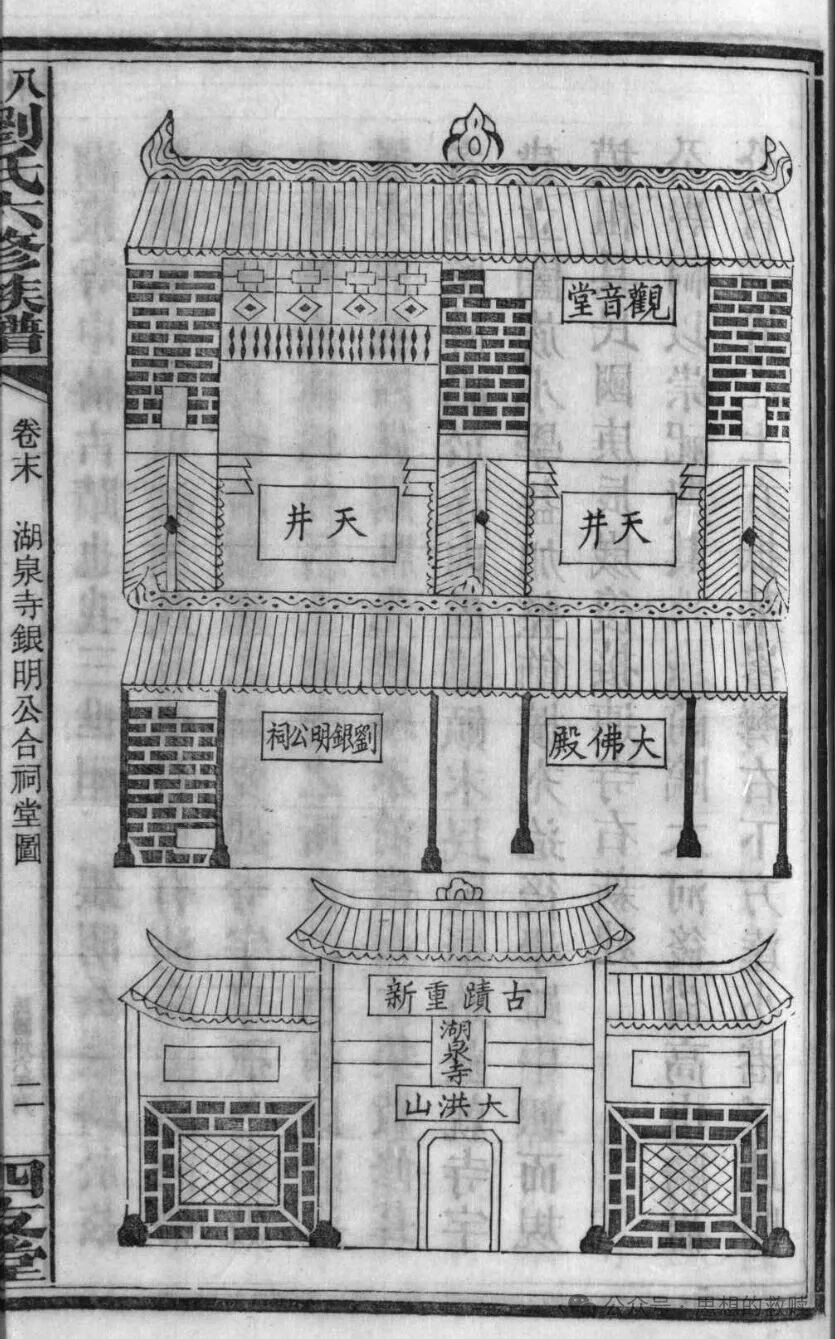 觀音堂
天井
天井
大佛殿
劉銀明公祠
古蹟重新
湖泉寺
大洪山
八劉氏六修族譜
卷末 湖泉寺銀明公合祠堂圖
二
公众号 · 思想的救赎